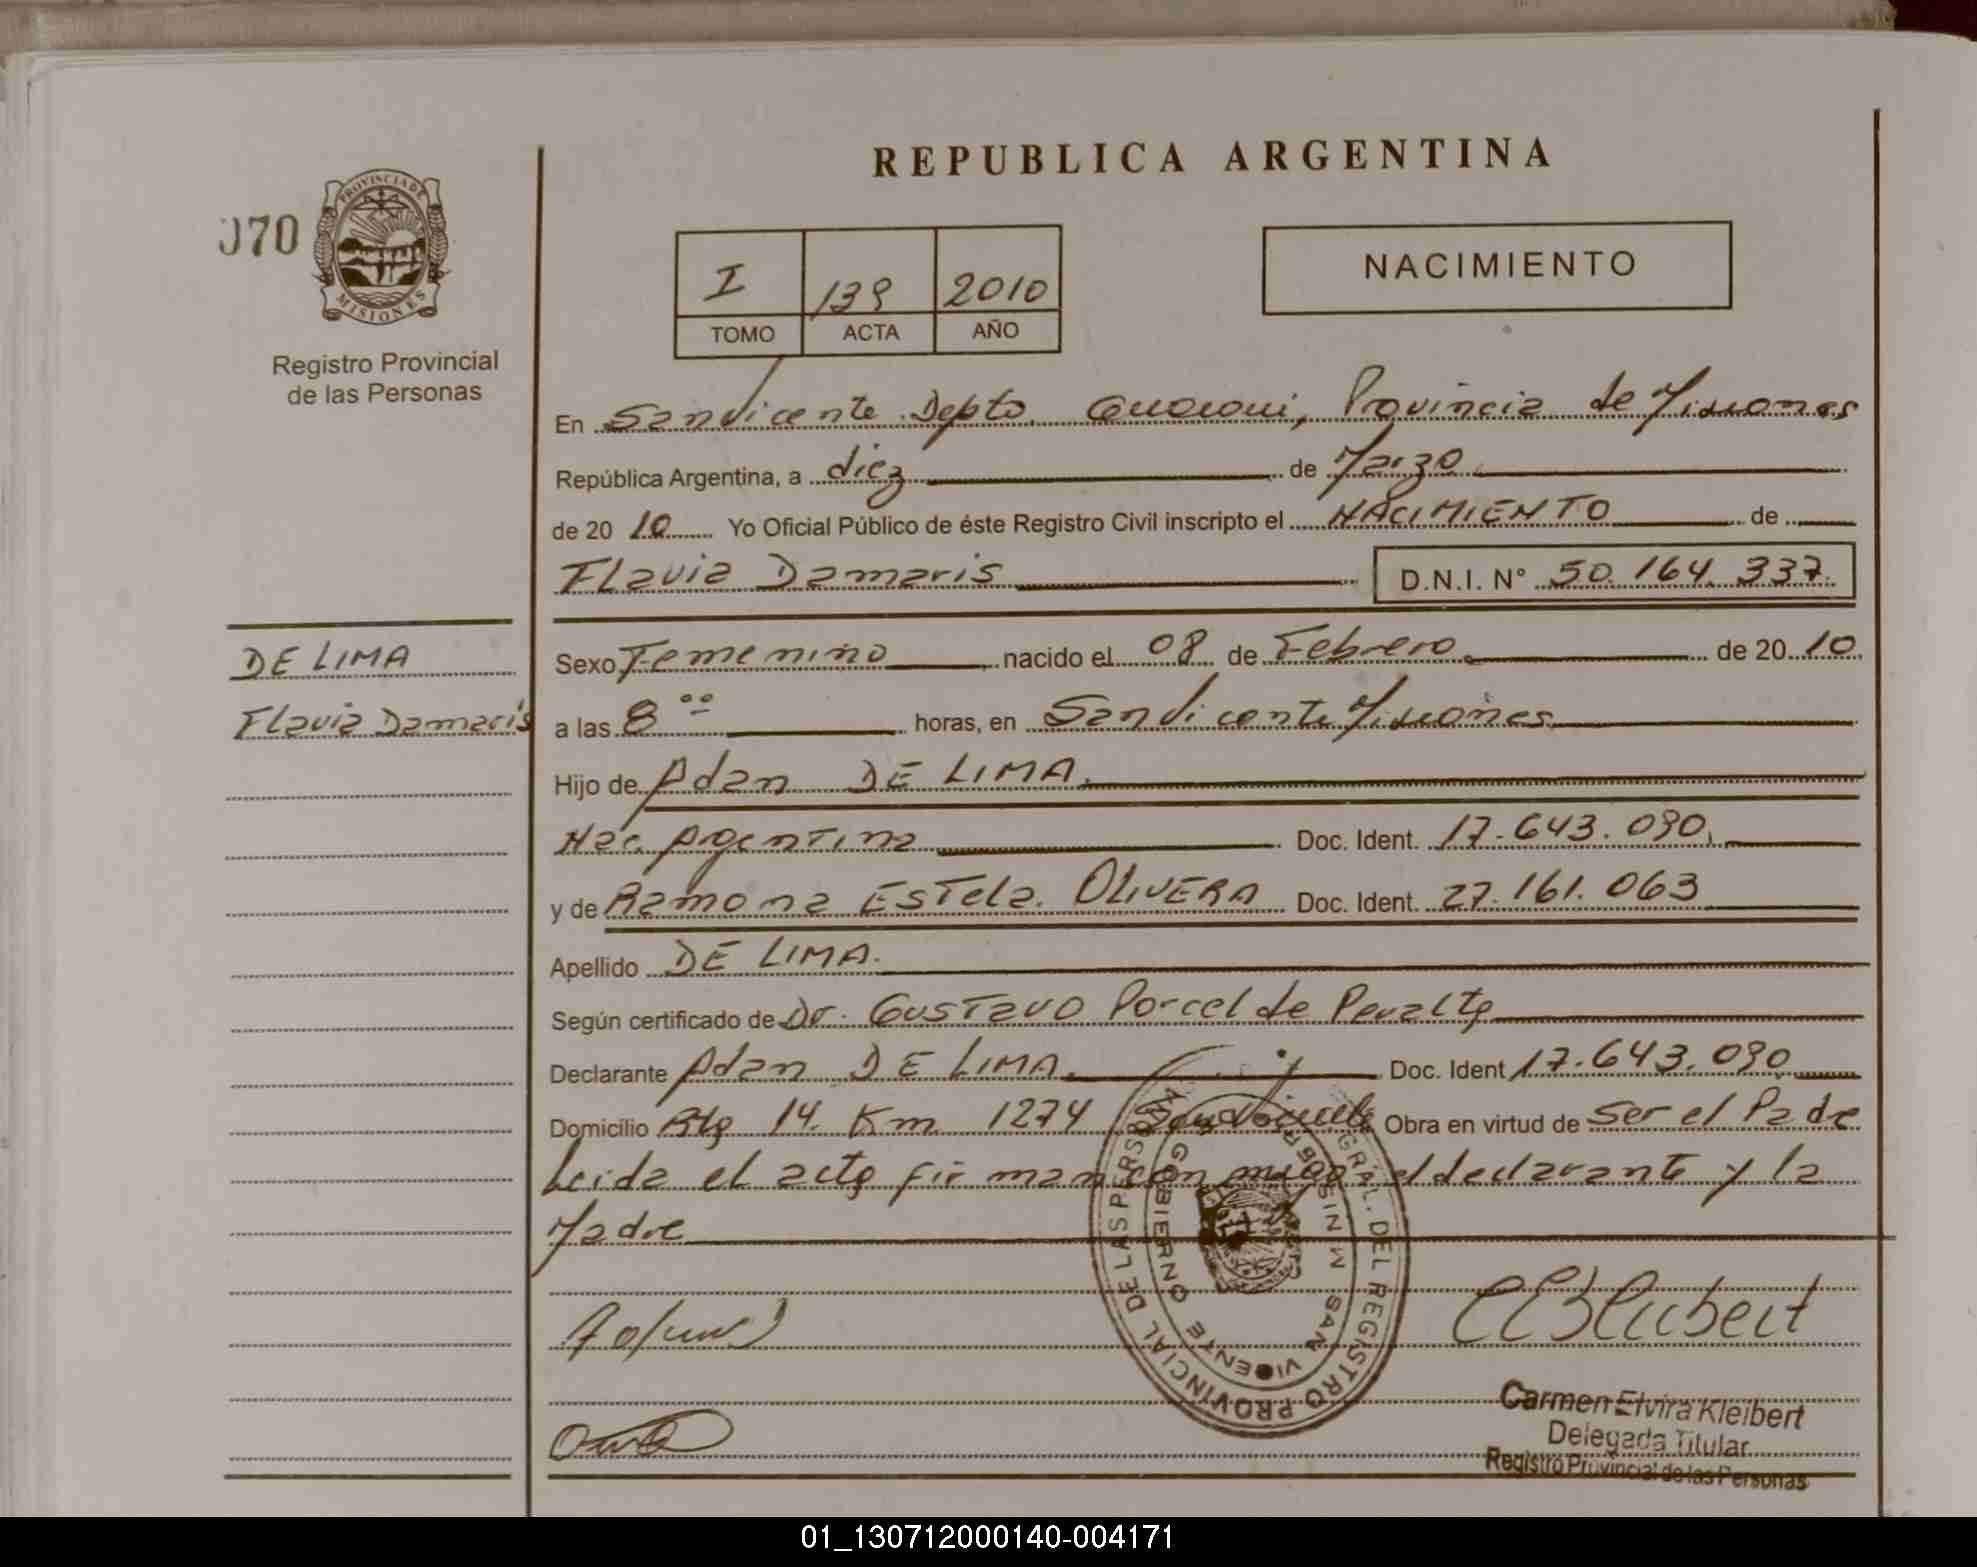 REPUBLICA ARGENTINA
070
PROVINCIA DE MISIONES
Registro Provincial
de las Personas
I 139 2010
TOMO ACTA AÑO
NACIMIENTO
En San Vicente Depto Guarani, Provincia de Misiones
República Argentina, a diez de Marzo
de 20 10 Yo Oficial Público de éste Registro Civil inscripto el NACIMIENTO de
Flavia Damaris D.N.I. N° 50.164.337.
DE LIMA
Flavia Damaris
Sexo Femenino nacido el 08 de Febrero de 20 10
a las 8 00 horas, en San Vicente Misiones
Hijo de Adan DE LIMA.
Nac. Argentina Doc. Ident. 17.643.090.
y de Ramona Estela. OLIVERA Doc. Ident. 27.161.063
Apellido DE LIMA.
Según certificado de Dr. Gustavo Porcel de Peralta
Declarante Adan DE LIMA. Doc. Ident 17.643.090
Domicilio Rta 14. Km 1274 San Vicente Obra en virtud de Ser el Padre
Leida el acta firman con migo el declarante y la
Madre
REGISTRO PROVINCIAL DE LAS PERSONAS
GOBIERNO
SAN VICENTE
Carmen Elvira Kleibert
Delegada Titular
Registro Provincial de las Personas
01_130712000140-004171